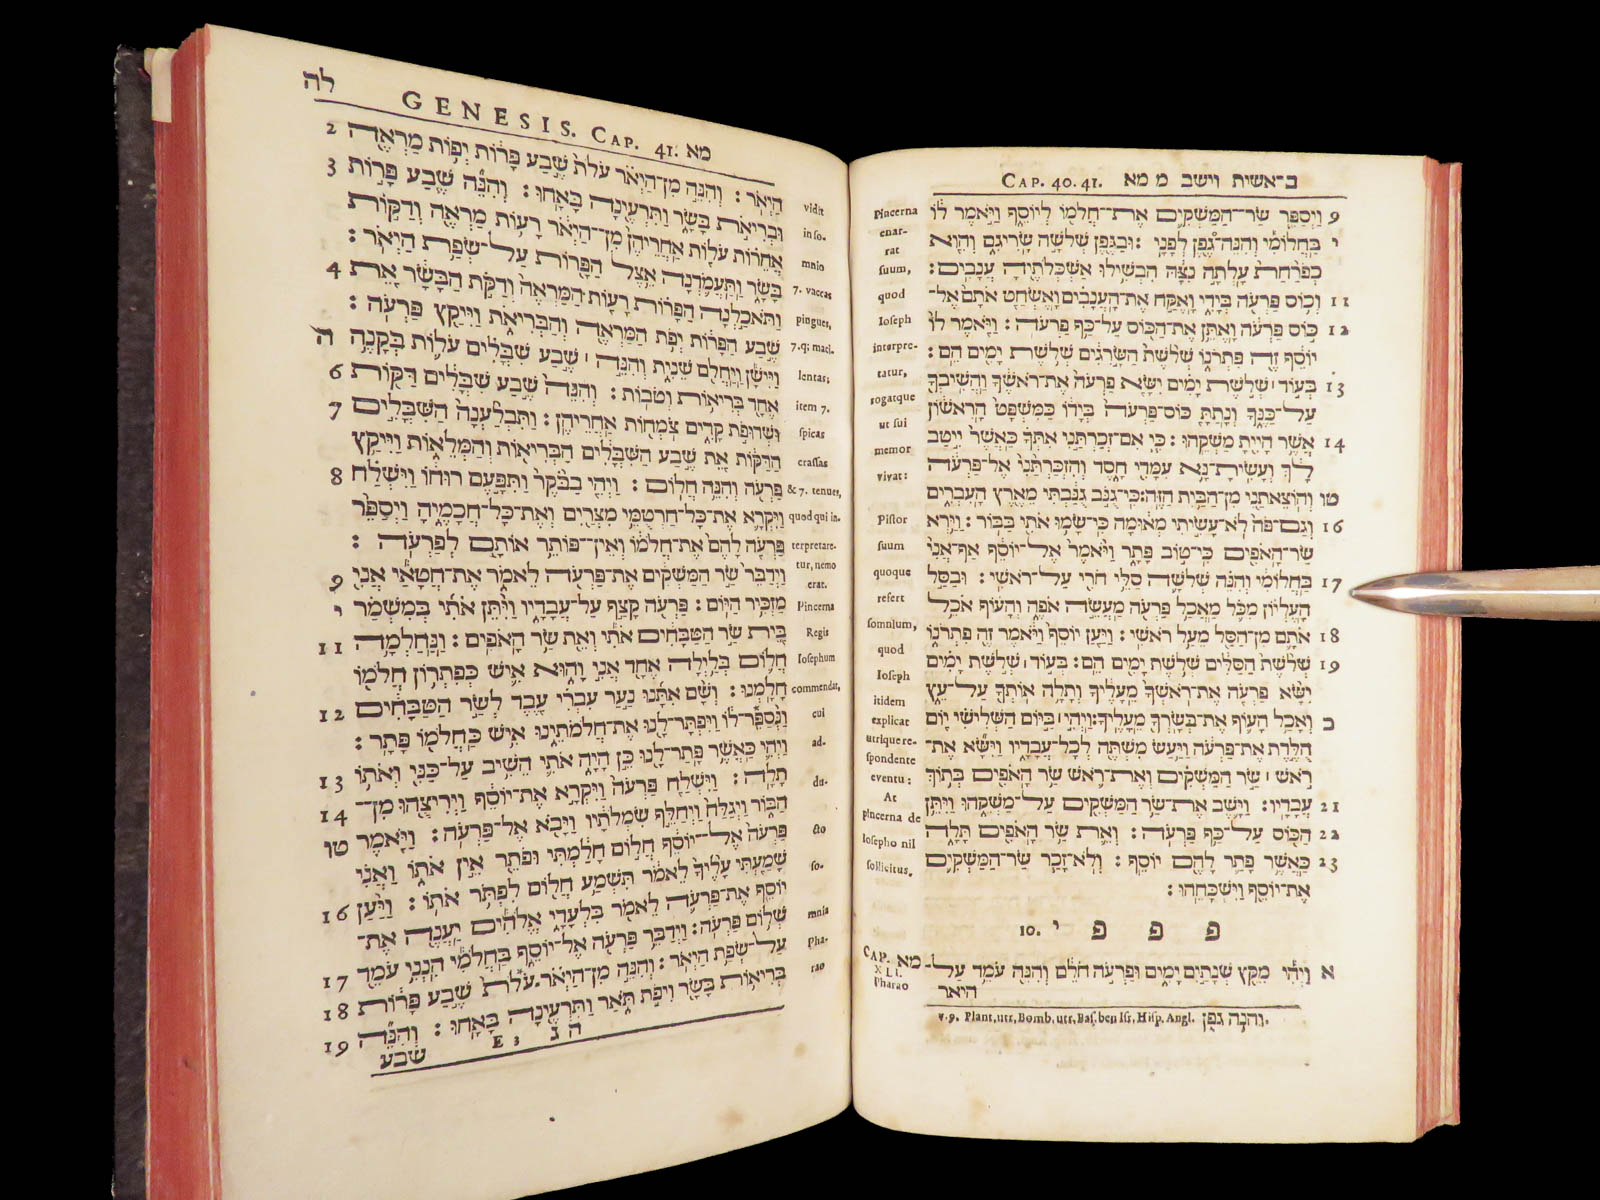 בראשית וישב מ מא CAP. 40. 41.
9 וַיְסַפֵּר שַׂר־הַמַּשְׁקִים אֶת־חֲלֹמוֹ לְיוֹסֵף וַיֹּאמֶר לוֹ
י בַּחֲלוֹמִי וְהִנֵּה־גֶפֶן לְפָנָי : וּבַגֶּפֶן שְׁלֹשָׁה שָׂרִיגִם וְהִוא
כְפֹרַחַת עָלְתָה נִצָּהּ הִבְשִׁילוּ אַשְׁכְּלֹתֶיהָ עֲנָבִים :
11 וְכוֹס פַּרְעֹה בְּיָדִי וָאֶקַּח אֶת־הָעֲנָבִים וָאֶשְׂחַט אֹתָם אֶל־
12 כּוֹס פַּרְעֹה וָאֶתֵּן אֶת־הַכּוֹס עַל־כַּף פַּרְעֹה : וַיֹּאמֶר לוֹ
יוֹסֵף זֶה פִּתְרֹנוֹ שְׁלֹשֶׁת הַשָּׂרִגִים שְׁלֹשֶׁת יָמִים הֵם :
13 בְּעוֹד ׀ שְׁלֹשֶׁת יָמִים יִשָּׂא פַרְעֹה אֶת־רֹאשֶׁךָ וַהֲשִׁיבְךָ
עַל־כַּנֶּךָ וְנָתַתָּ כוֹס־פַּרְעֹה בְּיָדוֹ כַּמִּשְׁפָּט הָרִאשׁוֹן
14 אֲשֶׁר הָיִיתָ מַשְׁקֵהוּ : כִּי אִם־זְכַרְתַּנִי אִתְּךָ כַּאֲשֶׁר יִיטַב
לָךְ וְעָשִׂיתָ־נָּא עִמָּדִי חָסֶד וְהִזְכַּרְתַּנִי אֶל־פַּרְעֹה
טו וְהוֹצֵאתַנִי מִן־הַבַּיִת הַזֶּה : כִּי־גֻנֹּב גֻּנַּבְתִּי מֵאֶרֶץ הָעִבְרִים
16 וְגַם־פֹּה לֹא־עָשִׂיתִי מְאוּמָה כִּי־שָׂמוּ אֹתִי בַּבּוֹר : וַיַּרְא
שַׂר־הָאֹפִים כִּי־טוֹב פָּתָר וַיֹּאמֶר אֶל־יוֹסֵף אַף־אֲנִי
17 בַּחֲלוֹמִי וְהִנֵּה שְׁלֹשָׁה סַלֵּי חֹרִי עַל־רֹאשִׁי : וּבַסַּל
הָעֶלְיוֹן מִכֹּל מַאֲכַל פַּרְעֹה מַעֲשֵׂה אֹפֶה וְהָעוֹף אֹכֵל
18 אֹתָם מִן־הַסַּל מֵעַל רֹאשִׁי : וַיַּעַן יוֹסֵף וַיֹּאמֶר זֶה פִּתְרֹנוֹ
19 שְׁלֹשֶׁת הַסַּלִּים שְׁלֹשֶׁת יָמִים הֵם : בְּעוֹד ׀ שְׁלֹשֶׁת יָמִים
יִשָּׂא פַרְעֹה אֶת־רֹאשְׁךָ מֵעָלֶיךָ וְתָלָה אוֹתְךָ עַל־עֵץ
כ וְאָכַל הָעוֹף אֶת־בְּשָׂרְךָ מֵעָלֶיךָ : וַיְהִי ׀ בַּיּוֹם הַשְּׁלִישִׁי יוֹם
הֻלֶּדֶת אֶת־פַּרְעֹה וַיַּעַשׂ מִשְׁתֶּה לְכָל־עֲבָדָיו וַיִּשָּׂא אֶת־
רֹאשׁ ׀ שַׂר הַמַּשְׁקִים וְאֶת־רֹאשׁ שַׂר הָאֹפִים בְּתוֹךְ
21 עֲבָדָיו : וַיָּשֶׁב אֶת־שַׂר הַמַּשְׁקִים עַל־מַשְׁקֵהוּ וַיִּתֵּן
22 הַכּוֹס עַל־כַּף פַּרְעֹה : וְאֵת שַׂר הָאֹפִים תָּלָה
23 כַּאֲשֶׁר פָּתַר לָהֶם יוֹסֵף : וְלֹא־זָכַר שַׂר־הַמַּשְׁקִים
אֶת־יוֹסֵף וַיִּשְׁכָּחֵהוּ :
פ פ פ י 10.
א וַיְהִי מִקֵּץ שְׁנָתַיִם יָמִים וּפַרְעֹה חֹלֵם וְהִנֵּה עֹמֵד עַל־ מא
היאר
v.9. Plant, utr, Bomb, utr, Bas, ben Isr, Hisp, Angl. והנה גפן.
Pincerna
enar-
rat
suum,
quod
Ioseph
interpre-
tatur,
rogatque
ut sui
memor
vivat :
Pistor
suum
quoque
refert
somnium,
quod
Ioseph
itidem
explicat
utrique re-
spondente
eventu :
At
pincerna de
Iosepho nil
sollicitus.
CAP.
XLI.
Pharao
GENESIS. CAP. 41. מא לה
2 הַיְאֹר : וְהִנֵּה מִן־הַיְאֹר עֹלֹת שֶׁבַע פָּרוֹת יְפוֹת מַרְאֶה
3 וּבְרִיאֹת בָּשָׂר וַתִּרְעֶינָה בָּאָחוּ : וְהִנֵּה שֶׁבַע פָּרוֹת
אֲחֵרוֹת עֹלוֹת אַחֲרֵיהֶן מִן־הַיְאֹר רָעוֹת מַרְאֶה וְדַקּוֹת
בָּשָׂר וַתַּעֲמֹדְנָה אֵצֶל הַפָּרוֹת עַל־שְׂפַת הַיְאֹר :
4 וַתֹּאכַלְנָה הַפָּרוֹת רָעוֹת הַמַּרְאֶה וְדַקֹּת הַבָּשָׂר אֵת
שֶׁבַע הַפָּרוֹת יְפֹת הַמַּרְאֶה וְהַבְּרִיאֹת וַיִּיקַץ פַּרְעֹה :
ה וַיִּישָׁן וַיַּחֲלֹם שֵׁנִית וְהִנֵּה ׀ שֶׁבַע שִׁבֳּלִים עֹלוֹת בְּקָנֶה
6 אֶחָד בְּרִיאוֹת וְטֹבוֹת : וְהִנֵּה שֶׁבַע שִׁבֳּלִים דַּקּוֹת
7 וּשְׁדוּפֹת קָדִים צֹמְחוֹת אַחֲרֵיהֶן : וַתִּבְלַעְנָה הַשִּׁבֳּלִים
הַדַּקּוֹת אֵת שֶׁבַע הַשִּׁבֳּלִים הַבְּרִיאוֹת וְהַמְּלֵאוֹת וַיִּיקַץ
8 פַּרְעֹה וְהִנֵּה חֲלוֹם : וַיְהִי בַבֹּקֶר וַתִּפָּעֶם רוּחוֹ וַיִּשְׁלַח
וַיִּקְרָא אֶת־כָּל־חַרְטֻמֵּי מִצְרַיִם וְאֶת־כָּל־חֲכָמֶיהָ וַיְסַפֵּר
פַּרְעֹה לָהֶם אֶת־חֲלֹמוֹ וְאֵין־פּוֹתֵר אוֹתָם לְפַרְעֹה :
9 וַיְדַבֵּר שַׂר הַמַּשְׁקִים אֶת־פַּרְעֹה לֵאמֹר אֶת־חֲטָאַי אֲנִי
י מַזְכִּיר הַיּוֹם : פַּרְעֹה קָצַף עַל־עֲבָדָיו וַיִּתֵּן אֹתִי בְּמִשְׁמַר
11 בֵּית שַׂר הַטַּבָּחִים אֹתִי וְאֵת שַׂר הָאֹפִים : וַנַּחַלְמָה
חֲלוֹם בְּלַיְלָה אֶחָד אֲנִי וָהוּא אִישׁ כְּפִתְרוֹן חֲלֹמוֹ
12 חָלָמְנוּ : וְשָׁם אִתָּנוּ נַעַר עִבְרִי עֶבֶד לְשַׂר הַטַּבָּחִים
וַנְּסַפֶּר־לוֹ וַיִּפְתָּר־לָנוּ אֶת־חֲלֹמֹתֵינוּ אִישׁ כַּחֲלֹמוֹ פָּתָר :
13 וַיְהִי כַּאֲשֶׁר פָּתַר־לָנוּ כֵּן הָיָה אֹתִי הֵשִׁיב עַל־כַּנִּי וְאֹתוֹ
14 תָלָה : וַיִּשְׁלַח פַּרְעֹה וַיִּקְרָא אֶת־יוֹסֵף וַיְרִיצֻהוּ מִן־
טו הַבּוֹר וַיְגַלַּח וַיְחַלֵּף שִׂמְלֹתָיו וַיָּבֹא אֶל־פַּרְעֹה : וַיֹּאמֶר
פַּרְעֹה אֶל־יוֹסֵף חֲלוֹם חָלַמְתִּי וּפֹתֵר אֵין אֹתוֹ וַאֲנִי
16 שָׁמַעְתִּי עָלֶיךָ לֵאמֹר תִּשְׁמַע חֲלוֹם לִפְתֹּר אֹתוֹ : וַיַּעַן
יוֹסֵף אֶת־פַּרְעֹה לֵאמֹר בִּלְעָדָי אֱלֹהִים יַעֲנֶה אֶת־
17 שְׁלוֹם פַּרְעֹה : וַיְדַבֵּר פַּרְעֹה אֶל־יוֹסֵף בַּחֲלֹמִי הִנְנִי עֹמֵד
18 עַל־שְׂפַת הַיְאֹר : וְהִנֵּה מִן־הַיְאֹר עֹלֹת שֶׁבַע פָּרוֹת
19 בְּרִיאוֹת בָּשָׂר וִיפֹת תֹּאַר וַתִּרְעֶינָה בָּאָחוּ : וְהִנֵּה
ה ג E 3 שבע
vidit
in so-
mnio
7. vaccas
pingues,
7.q; maci-
lentas;
item 7.
spicas
crassas
& 7. tenues,
quod qui in-
terpretare-
tur, nemo
erat.
Pincerna
Regis
Iosephum
commendat,
cui
ad-
du-
cto
so-
mnia
Pha-
rao